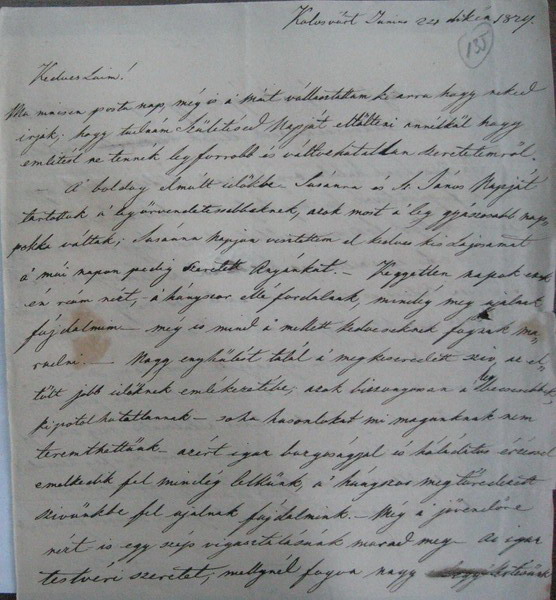 Kolosvárt Junius 24 dikén 1829.
135
Kedves Luim!
Ma nincsen posta nap, még is a Mát választottam ki arra hogy neked
irjak; hogy tudnám Születésed Napját eltölteni annélkül hogy
emlitést ne tennék legforrobb és változhatatlan szeretetemről.
— A boldog elmúlt időkbe Susánna és St. János Napját
tartottuk a legörvendetesebbeknek, azok most a leg gyászosabb nap-
pokká váltak; Susánna napján vesztettem el kedves kis Lajosomat
a mái napon pedig szeretett Anyánkat. — Kegyetlen napok ezek
én reám nézt, — a hányszor elé fordulnak, mindég meg ujulnak
fájdalmim — meg is mind a mellett kedveseknek fognak ma-
radni. — Nagy enyhülést talál a megkeseredett sziv, az el-
tölt jobb időknek emlékezetébe; azok bizonyosan a
kipotolhatatlannak — soha hasonlokat mi magunknak nem
teremthettünk — azért igaz buzgosággal és háládatos érzéssel
emelkedik fel mindég lelkünk, a hányszor megtöredezett
szivünkbe fel ujulnak fájdalmink. — Még a jövendőre
nézt is egy szép vigasztalásunk marad meg — az igaz
testvéri szeretet; mellynél fogva nagy